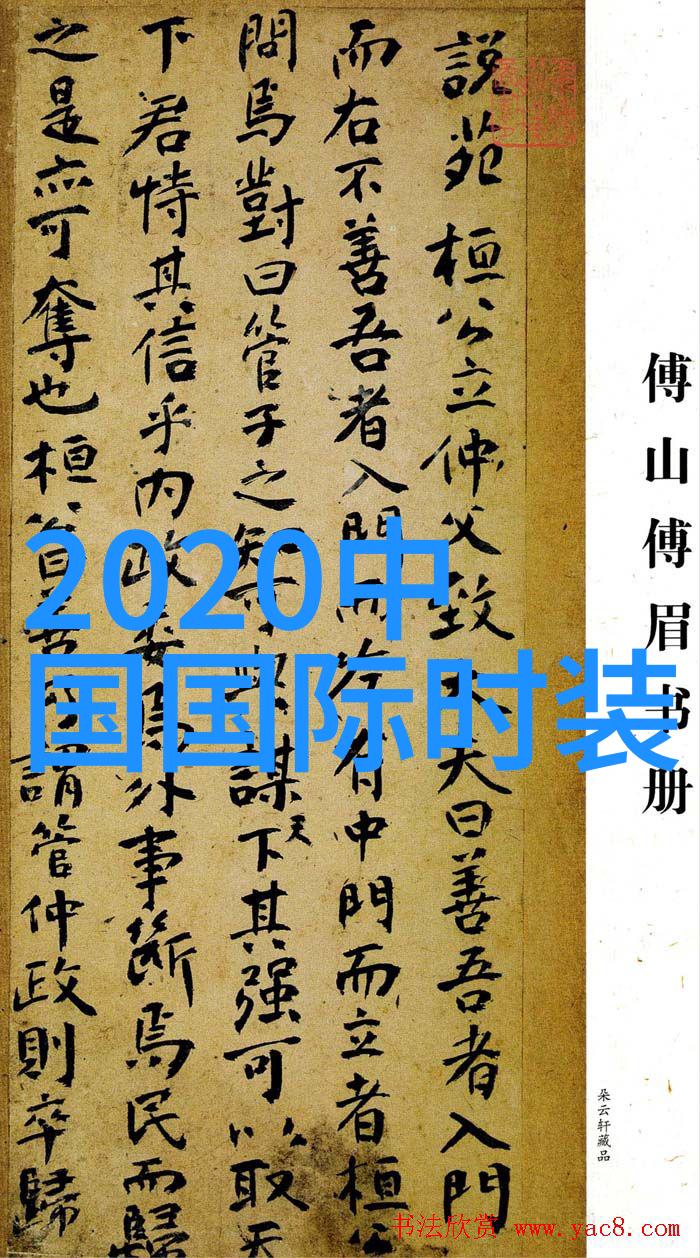 説苑 桓公立仲父致大夫曰善吾者入門
而右不善吾者入門而左有中門而立者桓公
問焉對曰管子之知可與謀天下其强可以取天
下君恃其信乎内政委焉外事斷焉民而歸
之是亦可奪也桓公曰善謂管仲政則卒歸
傅山傅眉书册
朵云轩藏品
2020中
国国际时装
书法欣赏 www.yac8.com